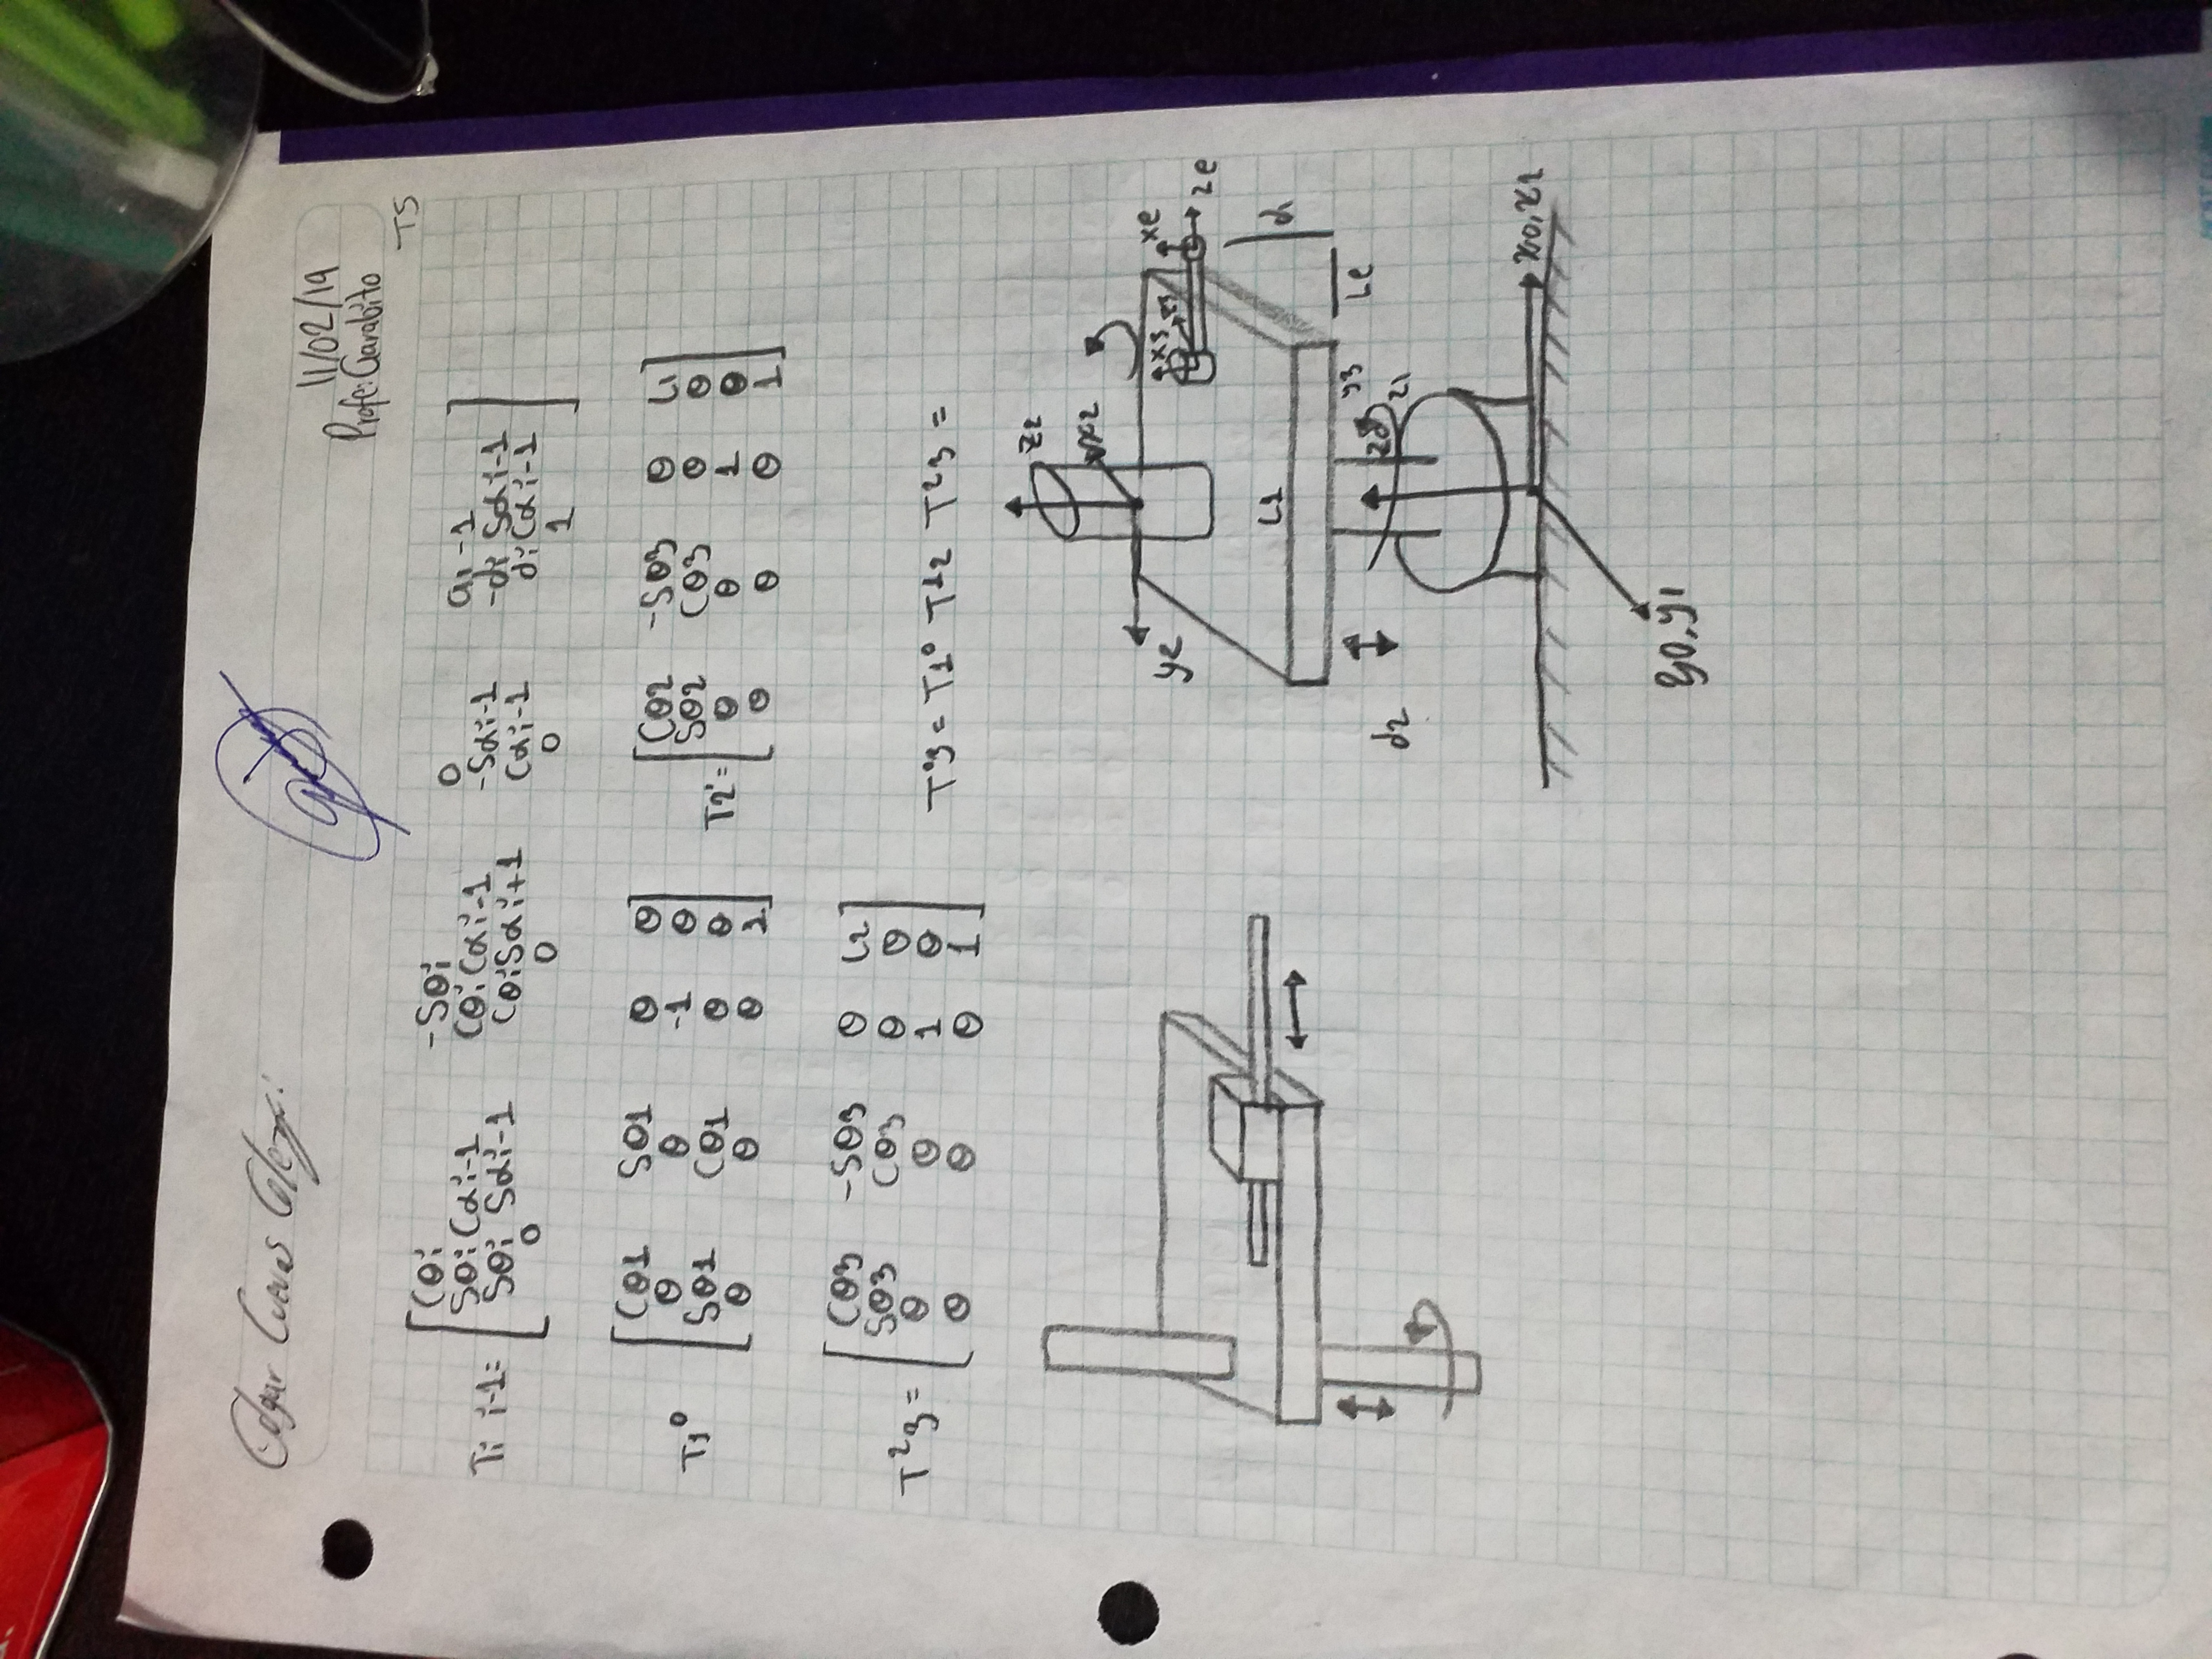 Edgar Cuevas
11/02/19
Profe: Garabito
T5
Cθi -Sθi 0 ai-1
Ti i-1= Sθi Cαi-1 CθiCαi-1 -Sαi-1 -di Sαi-1
Sθi Sαi-1 CθiSαi+1 Cαi-1 diCαi-1
0 0 0 1
T1⁰ Cθ1 Sθ1 0 0
0 0 -1 0
Sθ1 Cθ1 0 0
0 0 0 1
T2¹= Cθ2 -Sθ3 0 L1
Sθ2 Cθ3 0 0
0 0 1 0
0 0 0 1
T²3= Cθ3 -Sθ3 0 L2
Sθ3 Cθ3 0 0
0 0 1 0
0 0 0 1
T⁰3= T1⁰ T¹2 T²3 =
z2
x2
y2
x3
z3
xe
ze
L1
d1
Le
d2
y3
z1
x0,x1
y0,y1